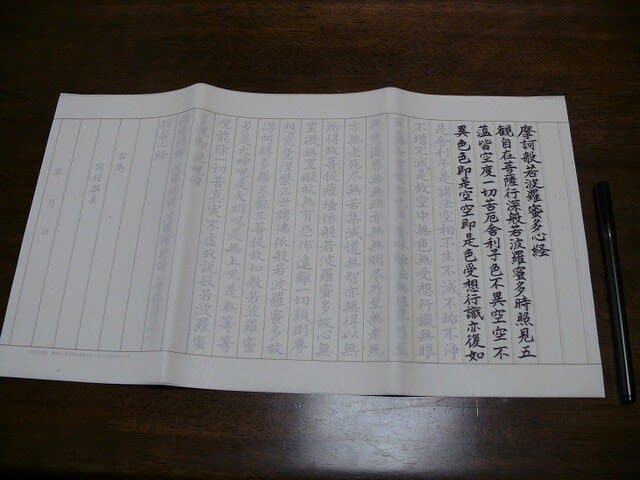 摩訶般若波羅蜜多心経
観自在菩薩行深般若波羅蜜多時照見五
蘊皆空度一切苦厄舎利子色不異空空不
異色色即是空空即是色受想行識亦復如
是舎利子是諸法空相不生不滅不垢不浄
不増不減是故空中無色無受想行識無眼
亦無老死尽無苦集滅道無智亦無得以無
所得故菩提薩埵依般若波羅蜜多故心無
罣礙無罣礙故無有恐怖遠離一切顛倒夢
想究竟涅槃三世諸佛依般若波羅蜜多故
得阿耨多羅三藐三菩提故知般若波羅蜜
多是大神呪是大明呪是無上呪是無等等
呪能除一切苦真実不虚故説般若波羅蜜
般若心経
右為
年 月 日